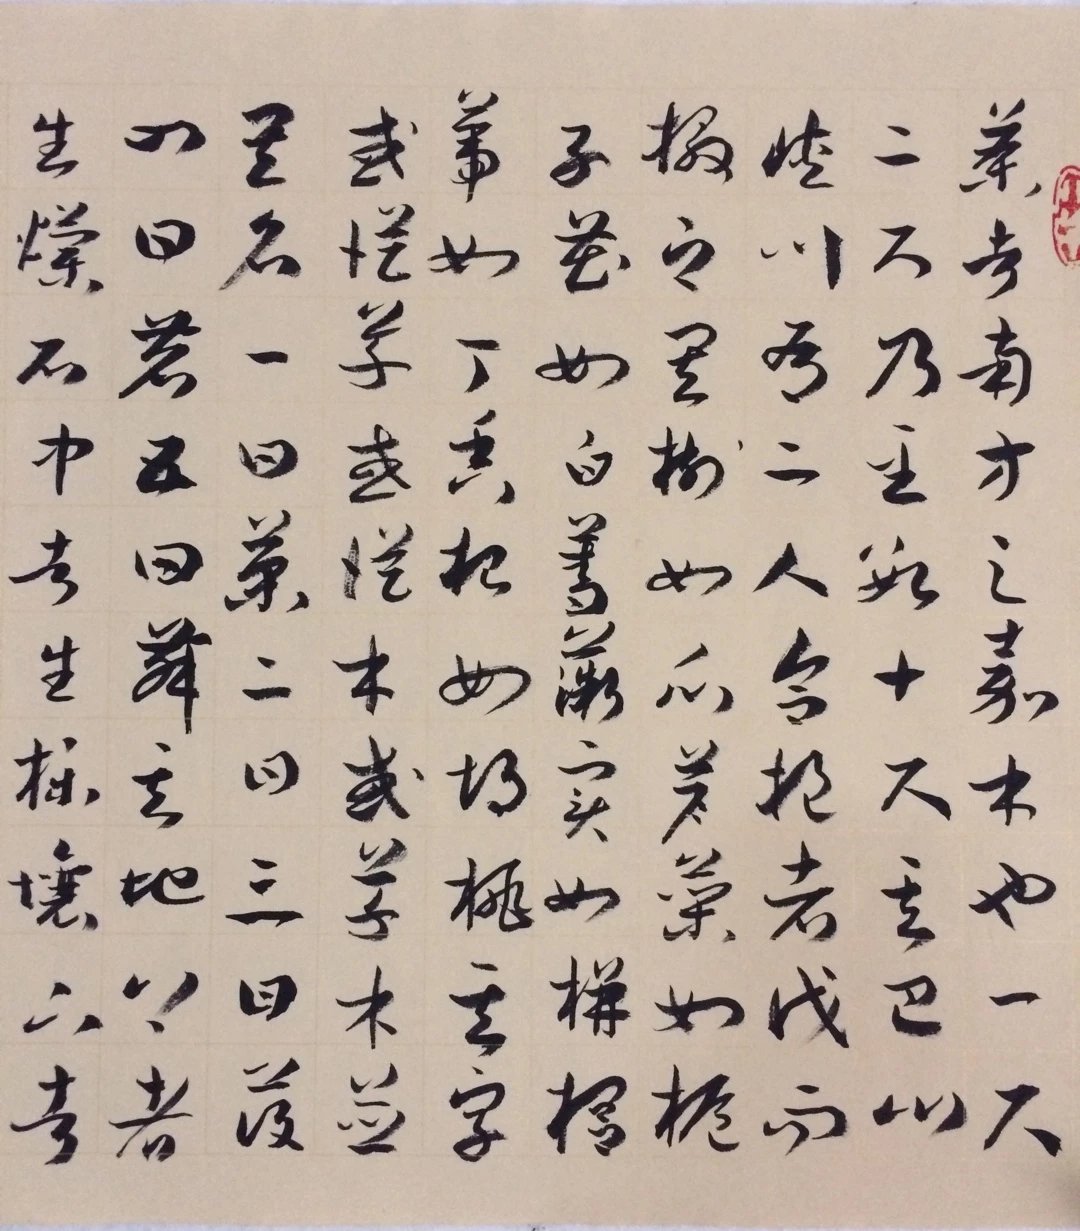 茶者南方之嘉木也一尺
二尺乃至數十尺其巴山
峽川有二人合抱者伐而
掇之其樹如瓜芦葉如梔
子花如白薔薇實如栟櫚
蒂如丁香根如胡桃其字
或從草或從木或草木並
其名一曰茶二曰三曰蔎
四曰茗五曰荈其地上者
生爛石中者生櫟壤下者